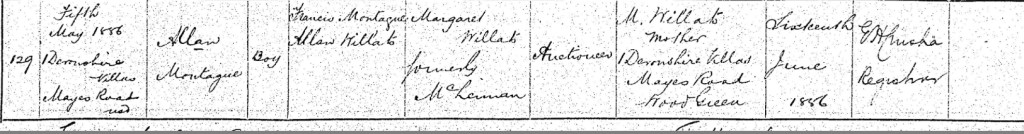 129
Fifth
May 1886
1 Devonshire
Villas
Mayes Road
Allan
Montague
Boy
Francis Montague
Allan Willats
Margaret
Willats
formerly
McLennan
Auctioneer
M. Willats
Mother
1 Devonshire Villas
Mayes Road
Wood Green
Sixteenth
June
1886
Registrar